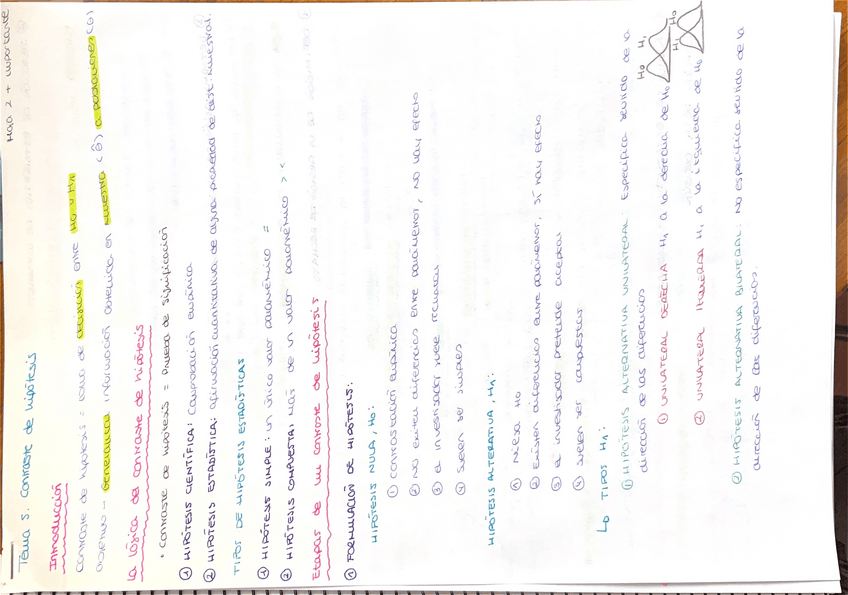 HOJA 2 + importante
Tema 5. Contraste de hipótesis
Introducción
Contraste de hipótesis = toma de decisión entre H0 y H1
Objetivo → Generalizar información obtenida en muestra (θ̂) a poblaciones (θ)
La lógica del contraste de hipótesis
· Contraste de hipótesis = Prueba de significación
① HIPÓTESIS CIENTÍFICA: Comprobación empírica
② HIPÓTESIS ESTADÍSTICA: afirmación cuantitativa de alguna propiedad de dist. muestral.
TIPOS DE HIPÓTESIS ESTADÍSTICAS
① HIPÓTESIS SIMPLE: un único valor paramétrico =
② HIPÓTESIS COMPUESTA: más de un valor paramétrico > <
Etapas de un contraste de hipótesis
① FORMULACIÓN DE HIPÓTESIS:
HIPÓTESIS NULA, H0:
① contrastación empírica
② No existen diferencias entre parámetros, no hay efecto
③ el investigador suele rechazar
④ suelen ser simples
HIPÓTESIS ALTERNATIVA, H1:
① Niega H0
② Existen diferencias entre parámetros, sí hay efecto
③ el investigador pretende aceptar
④ suelen ser compuestas
↳ TIPOS H1:
① HIPÓTESIS ALTERNATIVA UNILATERAL: Especifica sentido de la
dirección de las diferencias
H0 H1
① UNILATERAL DERECHA H1 a la derecha de H0
H1 H0
② UNILATERAL IZQUIERDA H1 a la izquierda de H0
② HIPÓTESIS ALTERNATIVA BILATERAL: No especifica sentido de la
dirección de las diferencias.